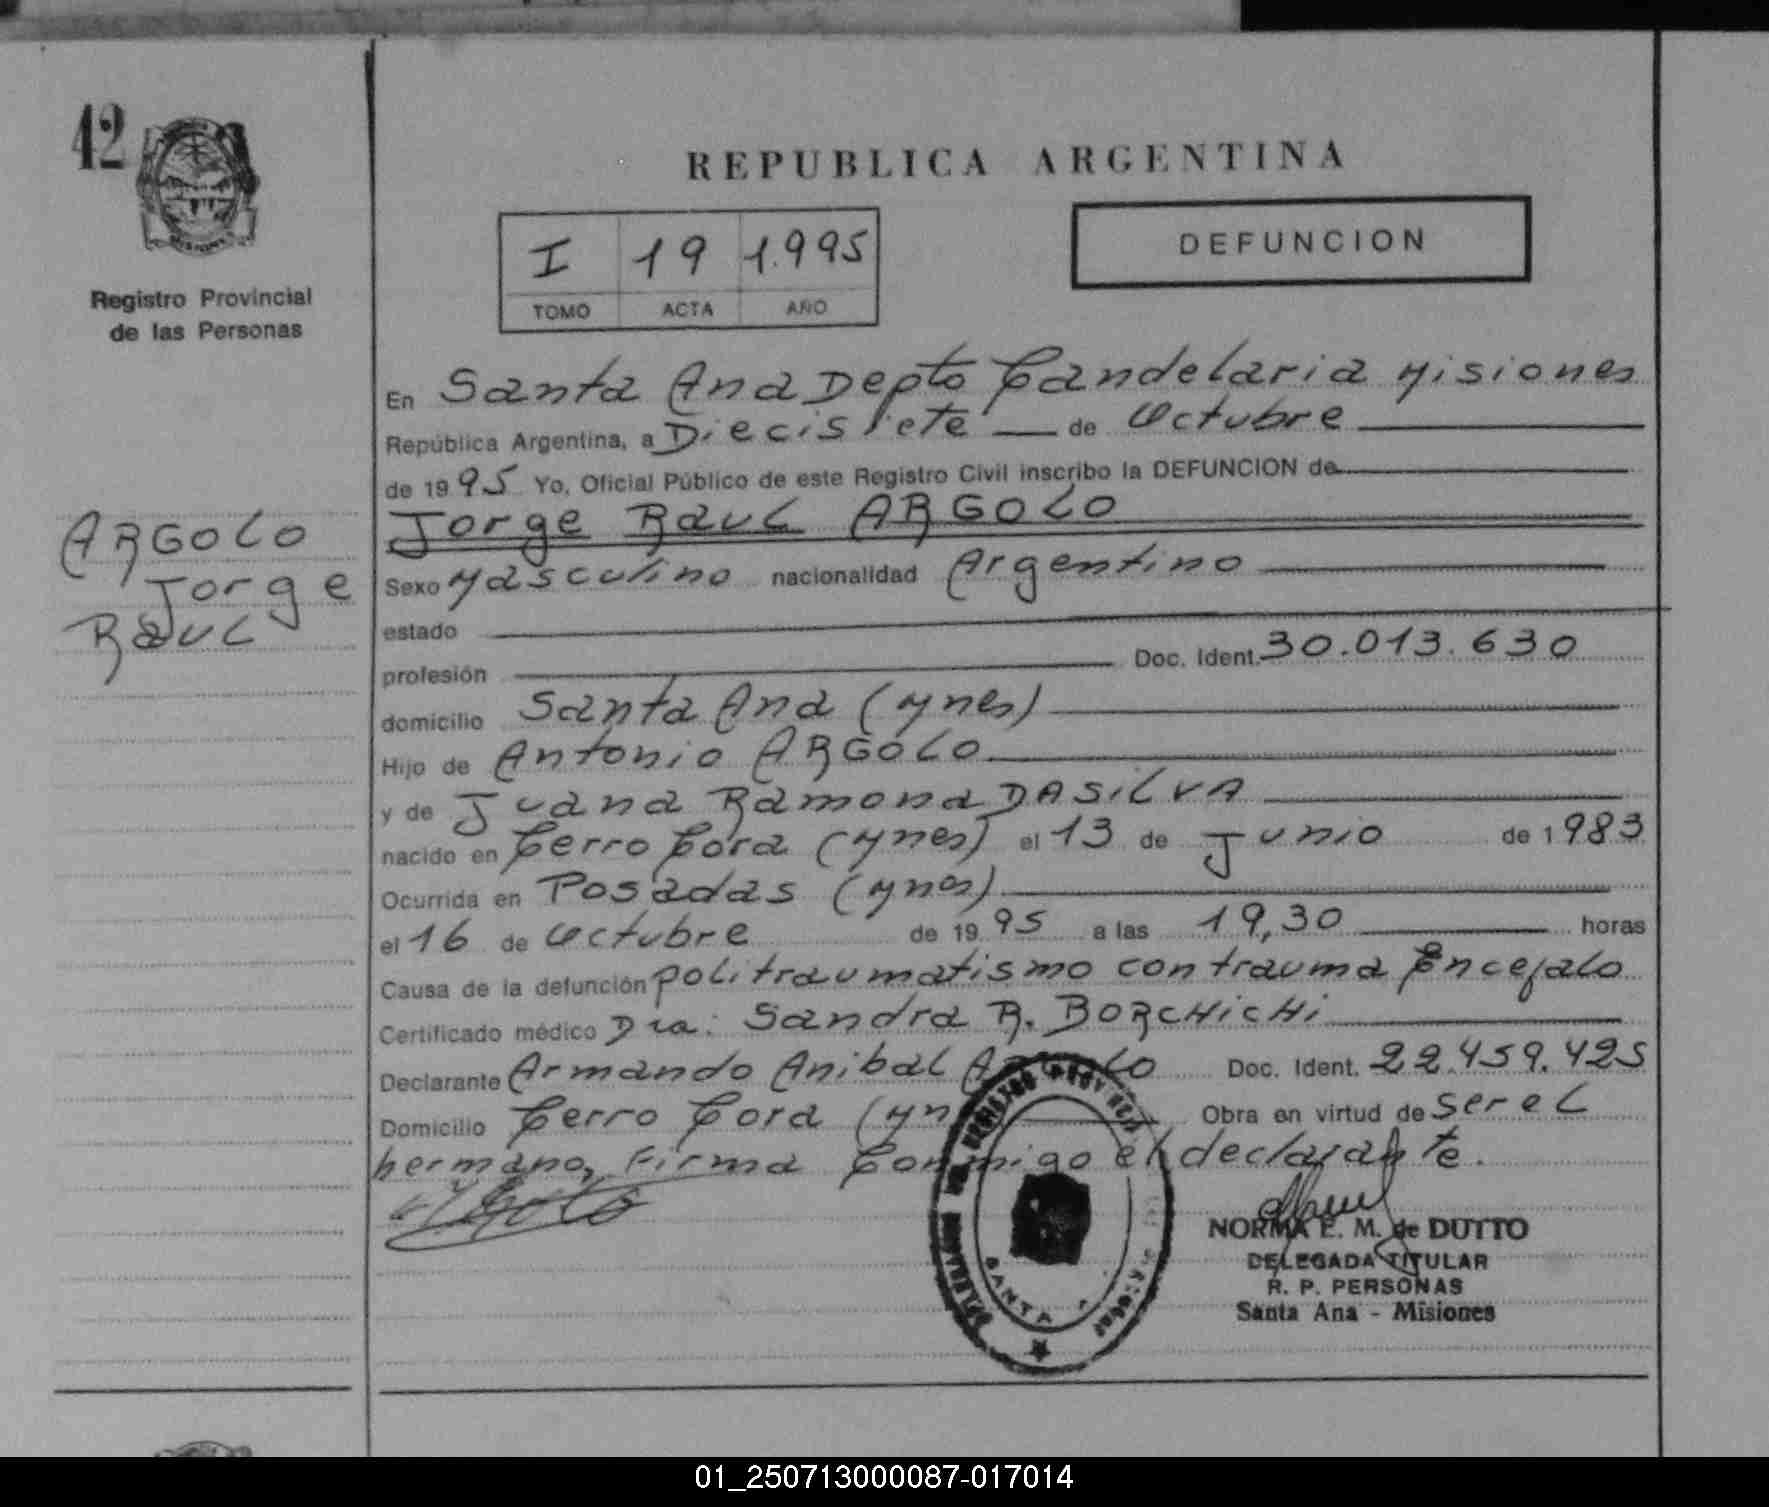 42
Registro Provincial
de las Personas
ARGOLO
Jorge
Raul
REPUBLICA ARGENTINA
I 19 1.995
TOMO ACTA AÑO
DEFUNCION
En Santa Ana Depto Candelaria Misiones
República Argentina, a Diecisiete de Octubre
de 1995 Yo, Oficial Público de este Registro Civil inscribo la DEFUNCION de
Jorge Raul ARGOLO
Sexo Masculino nacionalidad Argentino
estado
profesión Doc. Ident. 30.013.630
domicilio Santa Ana (Mnes)
Hijo de Antonio ARGOLO
y de Juana Ramona DASILVA
nacido en Cerro Cora (Mnes) el 13 de Junio de 1983
Ocurrida en Posadas (Mnes)
el 16 de Octubre de 1995 a las 19,30 horas
Causa de la defunción politraumatismo con trauma Encefalo
Certificado médico Dra: Sandra R. BORCHICHI
Declarante Armando Anibal Doc. Ident. 22.459.425
Domicilio Cerro Cora Obra en virtud de ser el
hermano, Firma Conmigo el declarante.
NORMA E. M. de DUTTO
DELEGADA TITULAR
R. P. PERSONAS
Santa Ana - Misiones
SANTA
01_250713000087-017014